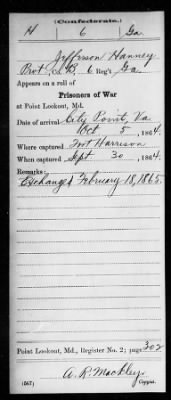 (Confederate.)
H 6 Ga.
Jefferson Hanney
Pvt. Co. B, 6 Reg't Ga.
Appears on a roll of
Prisoners of War
at Point Lookout, Md.
Date of arrival City Point, Va
Oct 5, 1864.
Where captured Fort Harrison
When captured Sept 30, 1864.
Remarks:
Exchanged February 18, 1865.
Point Lookout, Md., Register No. 2; page 302
(567) A. R. Mackley
Copyist.